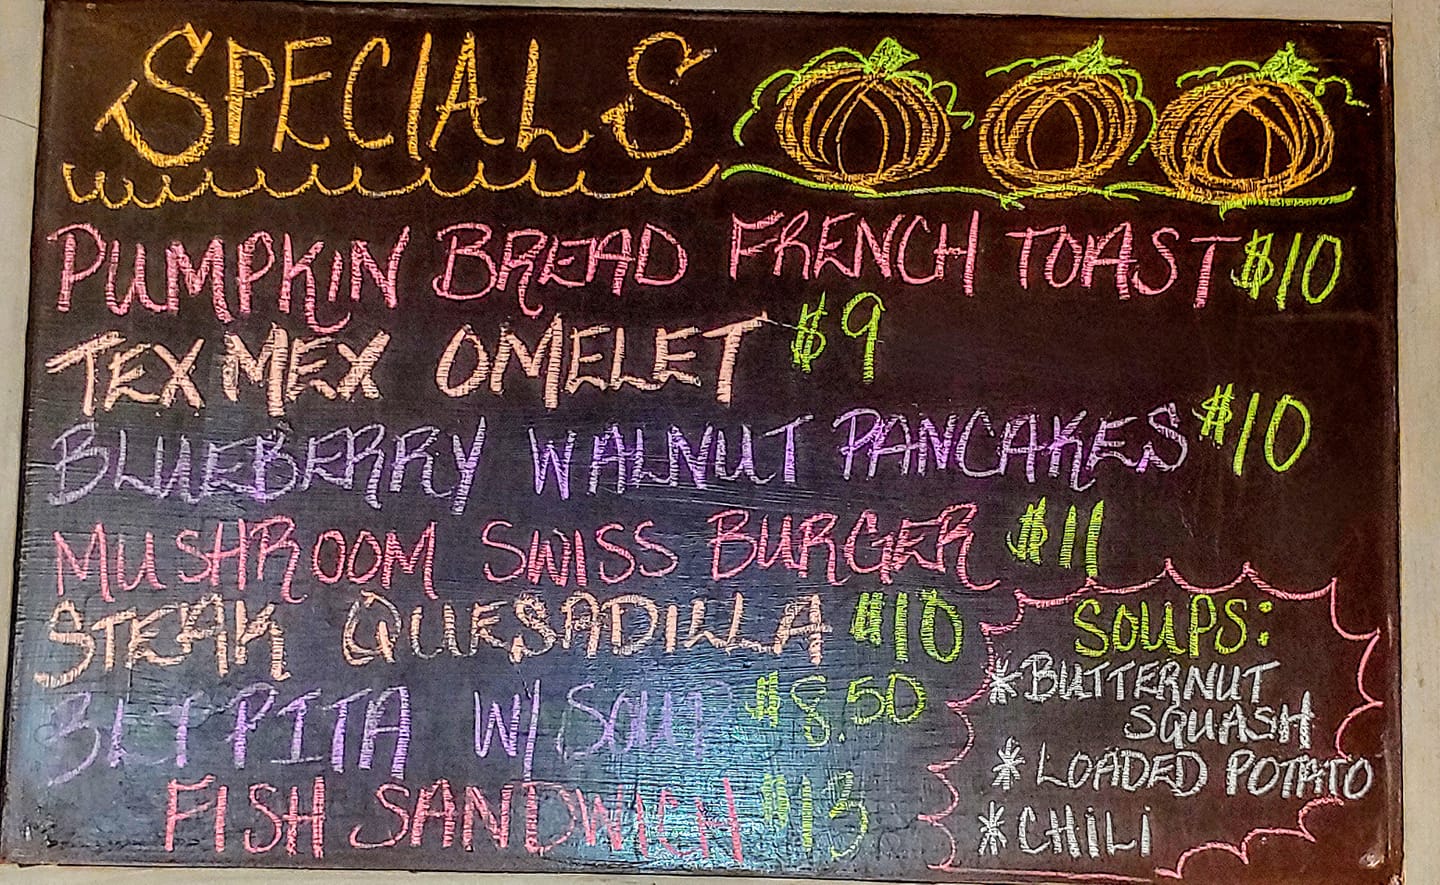 SPECIALS
PUMPKIN BREAD FRENCH TOAST $10
TEX MEX OMELET $9
BLUEBERRY WALNUT PANCAKES $10
MUSHROOM SWISS BURGER $11
STEAK QUESADILLA $10
BLT PITA W/ SOUP $8.50
FISH SANDWICH $13
SOUPS:
*BUTTERNUT
SQUASH
*LOADED POTATO
*CHILI